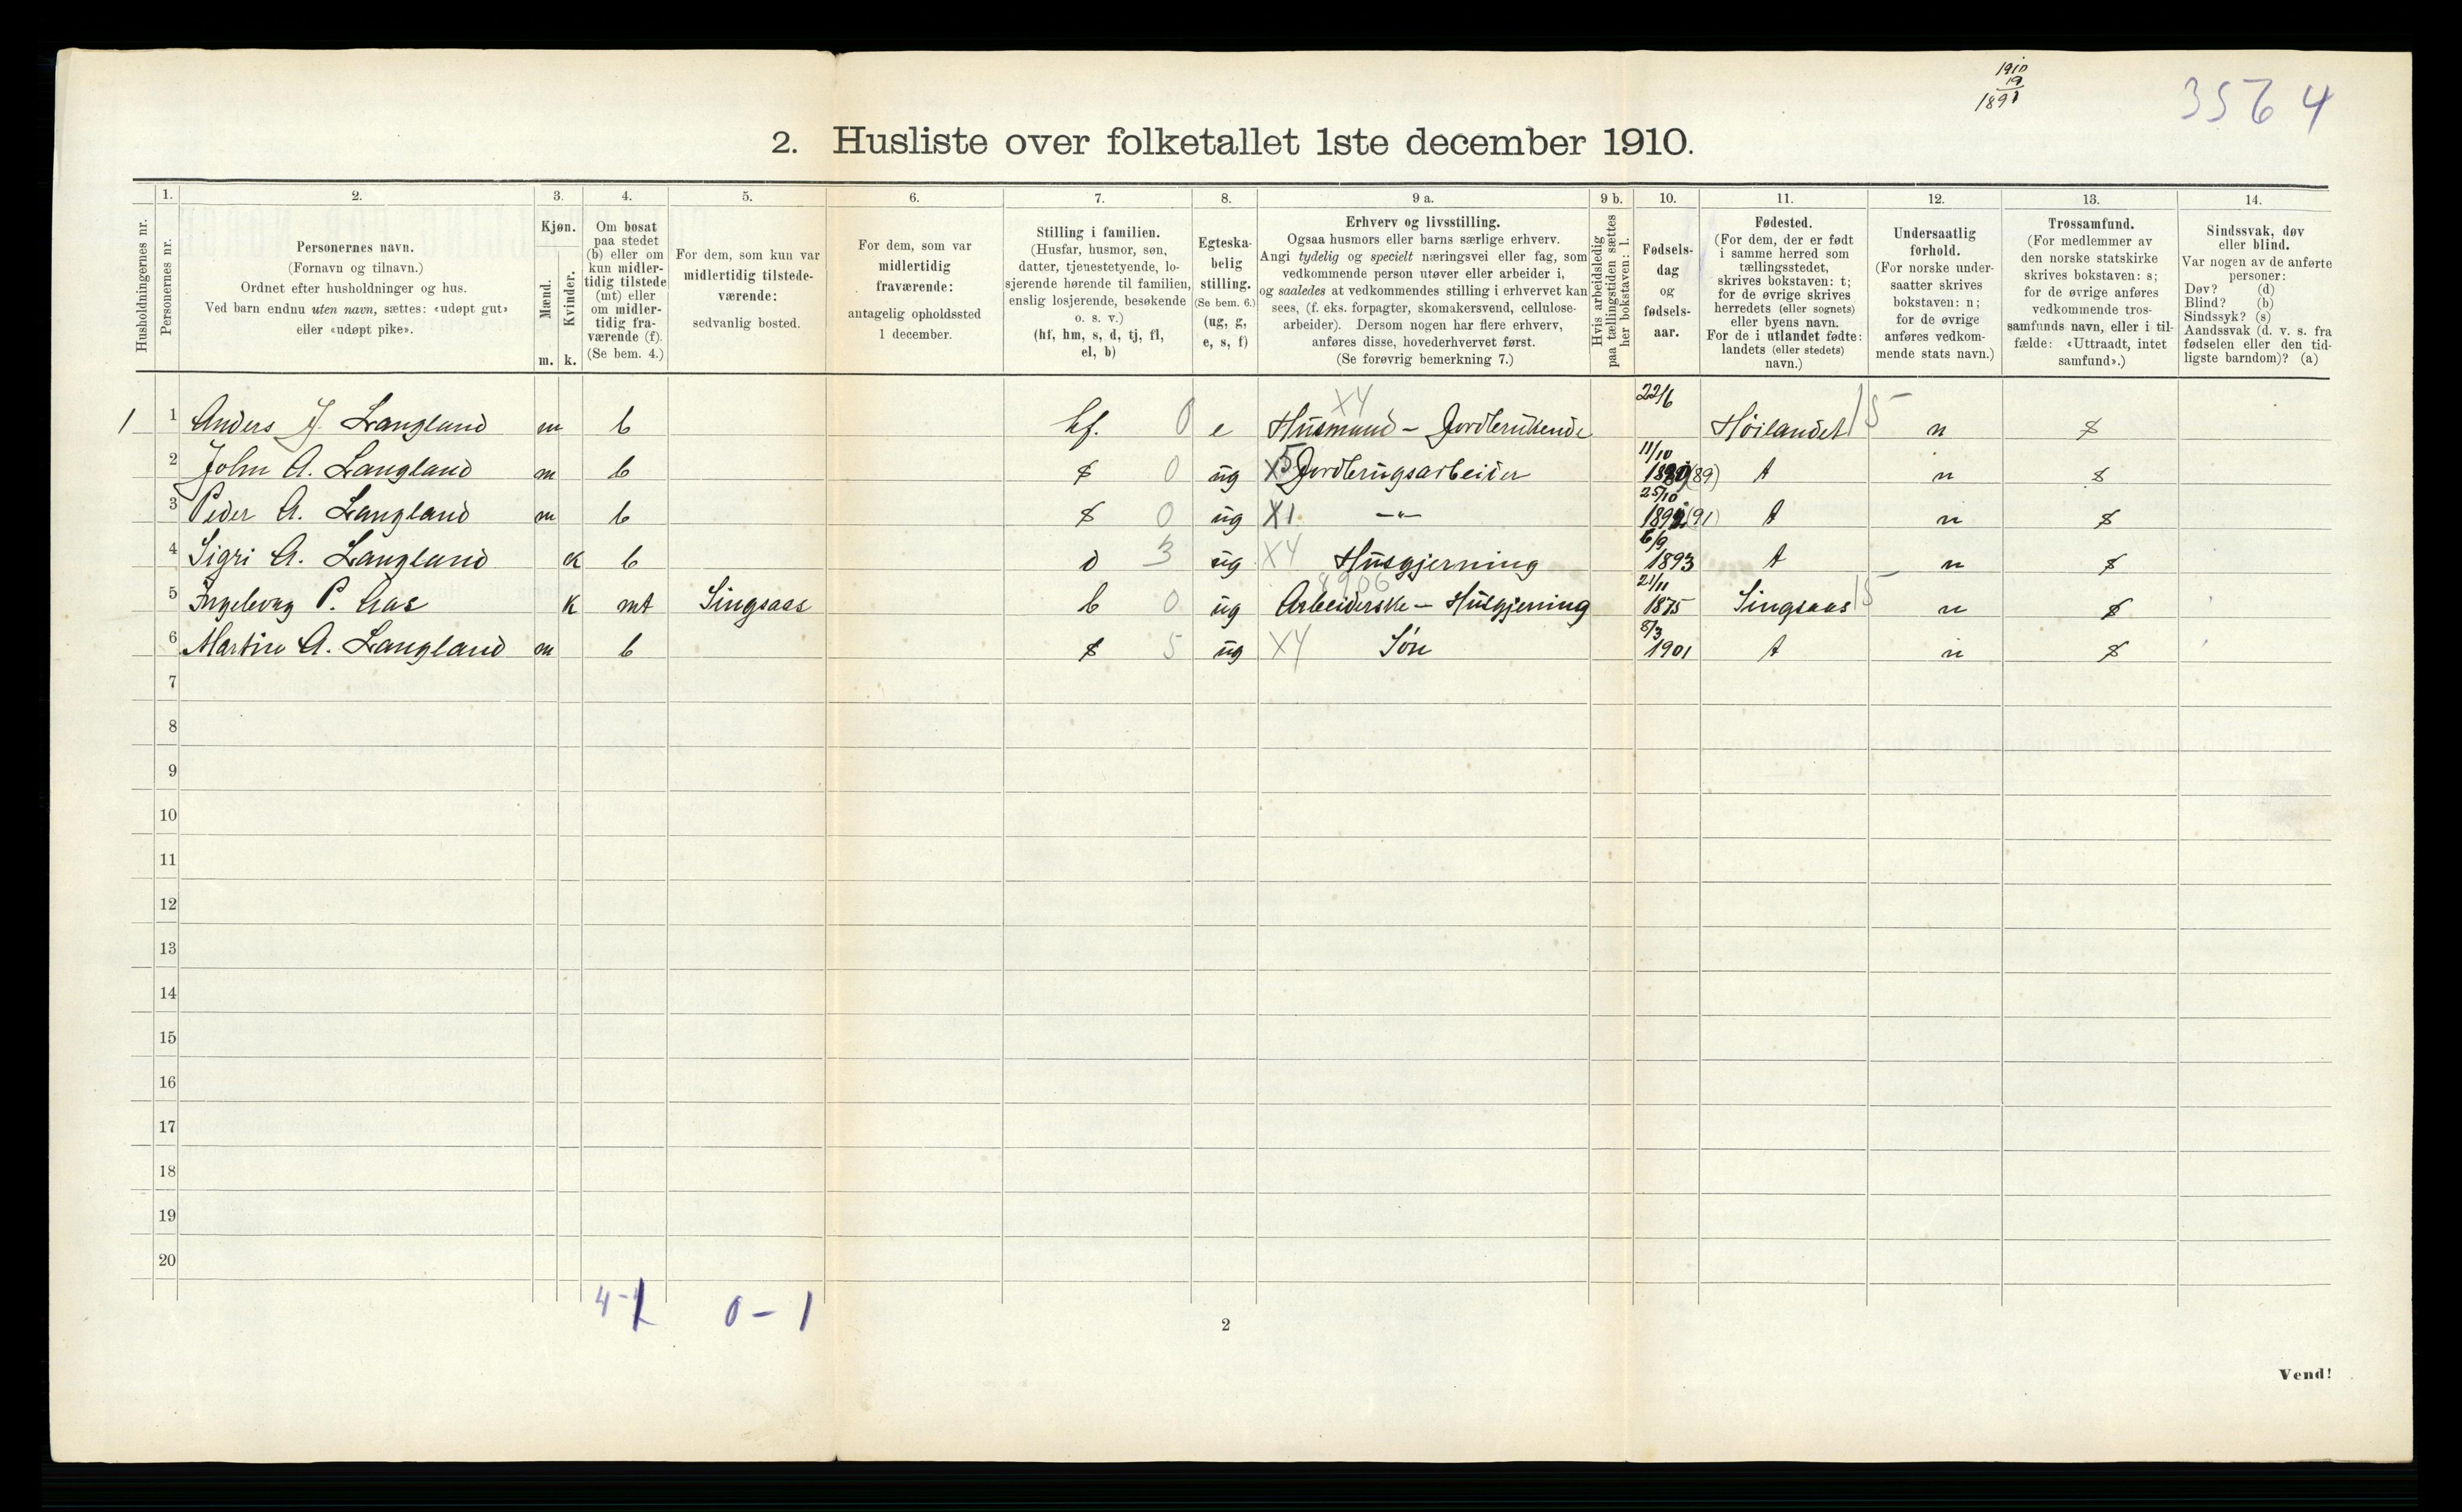 1910
19
1891
3564
2. Husliste over folketallet 1ste december 1910.
Husholdningernes nr.
1. Personernes nr.
2. Personernes navn. (Fornavn og tilnavn.) Ordnet efter husholdninger og hus. Ved barn endnu uten navn, sættes: «udøpt gut» eller «udøpt pike».
3. Kjøn. Mænd. m. Kvinder. k.
4. Om bosat paa stedet (b) eller om kun midlertidig tilstede (mt) eller om midlertidig fraværende (f). (Se bem. 4.)
5. For dem, som kun var midlertidig tilstedeværende: sedvanlig bosted.
6. For dem, som var midlertidig fraværende: antagelig opholdssted 1 december.
7. Stilling i familien. (Husfar, husmor, søn, datter, tjenestetyende, losjerende hørende til familien, enslig losjerende, besøkende o. s. v.) (hf, hm, s, d, tj, fl, el, b)
8. Egteskabelig stilling. (Se bem. 6.) (ug, g, e, s, f)
9 a. Erhverv og livsstilling. Ogsaa husmors eller barns særlige erhverv. Angi tydelig og specielt næringsvei eller fag, som vedkommende person utøver eller arbeider i, og saaledes at vedkommendes stilling i erhvervet kan sees, (f. eks. forpagter, skomakersvend, cellulosearbeider). Dersom nogen har flere erhverv, anføres disse, hovederhvervet først. (Se forøvrig bemerkning 7.)
9 b. Hvis arbeidsledig paa tællingstiden sættes her bokstaven: l.
10. Fødselsdag og fødselsaar.
11. Fødested. (For dem, der er født i samme herred som tællingsstedet, skrives bokstaven: t; for de øvrige skrives herredets (eller sognets) eller byens navn. For de i utlandet fødte: landets (eller stedets) navn.)
12. Undersaatlig forhold. (For norske undersaatter skrives bokstaven: n; for de øvrige anføres vedkommende stats navn.)
13. Trossamfund. (For medlemmer av den norske statskirke skrives bokstaven: s; for de øvrige anføres vedkommende trossamfunds navn, eller i tilfælde: «Uttraadt, intet samfund».)
14. Sindssvak, døv eller blind. Var nogen av de anførte personer: Døv? (d) Blind? (b) Sindssyk? (s) Aandssvak (d. v. s. fra fødselen eller den tidligste barndom)? (a)
1 1 Anders J. Langland m b hf. 0 e X4 Husmand - Jordbrukende 22/6 Höilandet 15 n s
2 John A. Langland m b s 0 ug X5 Jordbrugsarbeider 11/10 (89) t n s
3 Peder A. Langland m b s 0 ug X1 -"- 25/10 (91) t n s
4 Sigri A. Langland k b d 3 ug X4 Husgjerning 6/9 1893 t n s
5 Ingeborg P. Aas k mt Singsaas b 0 ug Arbeiderske - Husgjerning 21/11 1875 Singsaas 15 n s
6 Martin A. Langland m b s 5 ug X4 Sön 8/3 1901 t n s
7
8
9
10
11
12
13
14
15
16
17
18
19
20
4-1 0-1
2
Vend!